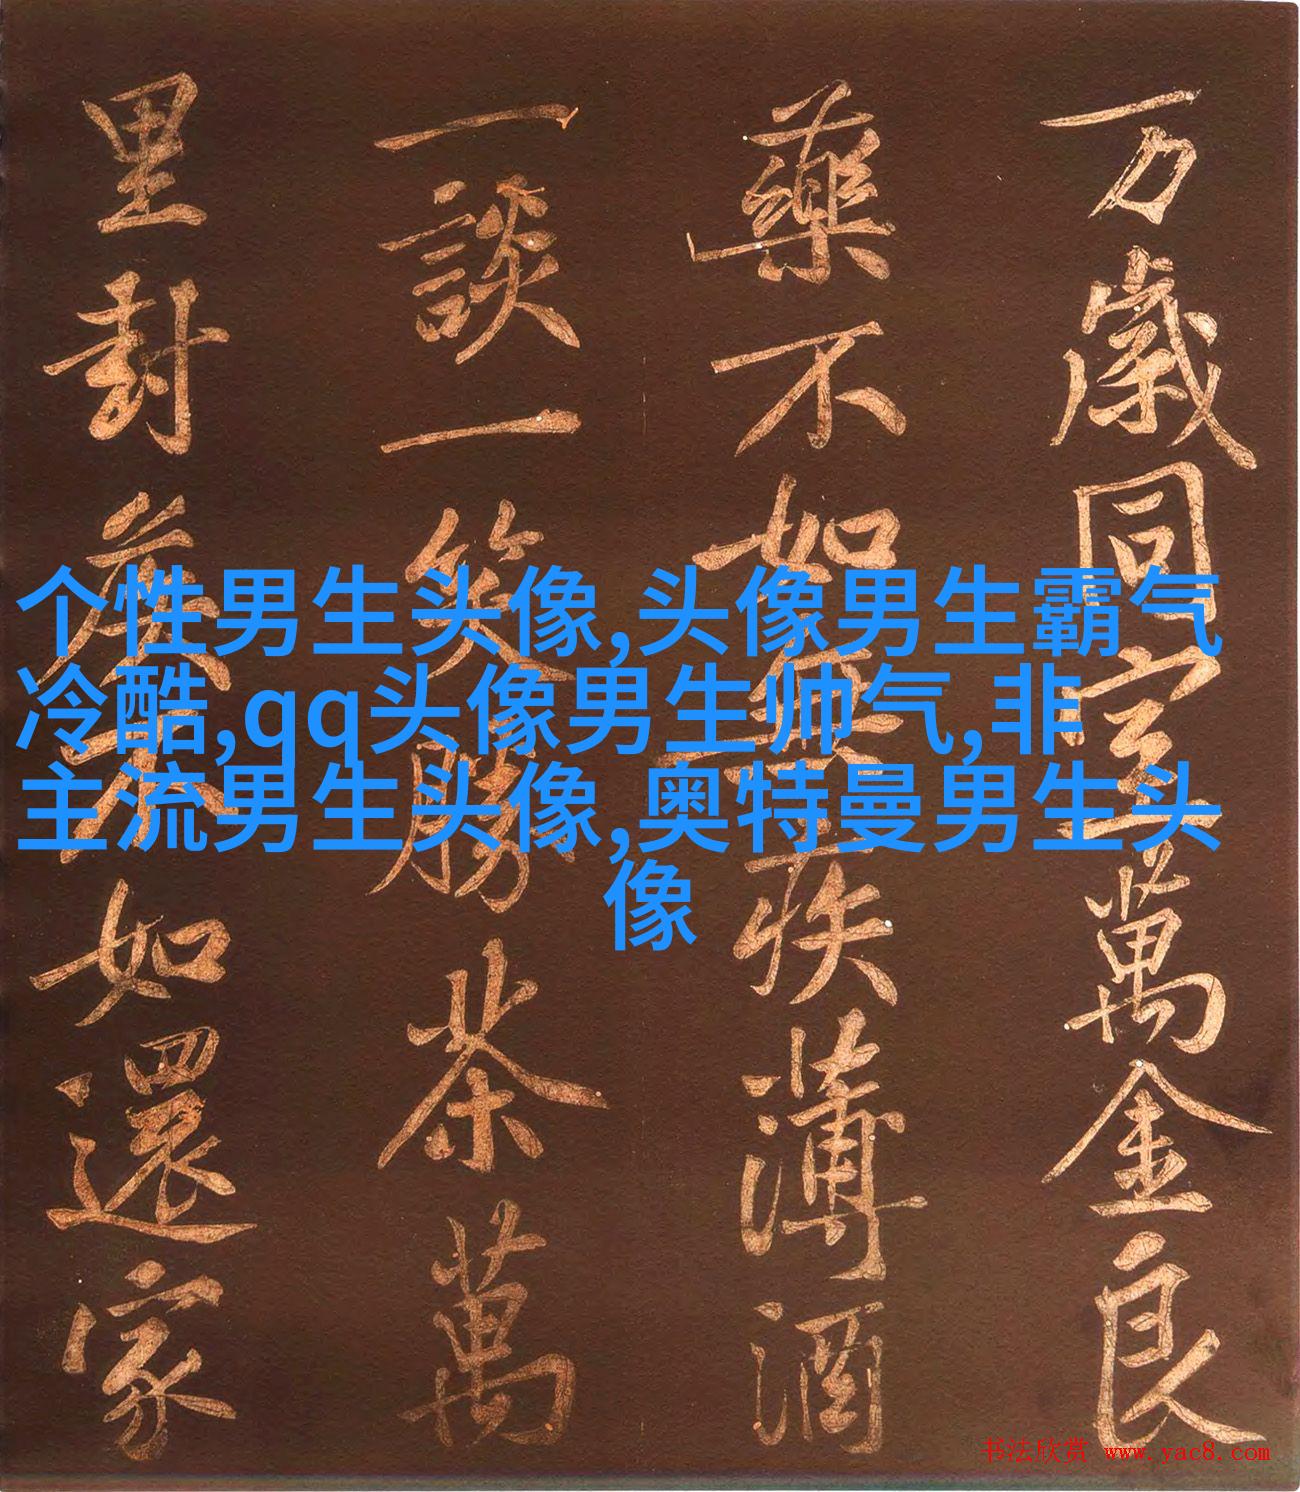 万歲同室萬金良
藥不如無疾薄酒
一談一笑勝茶萬
里封侯不如還家
个性男生头像,头像男生霸气
冷酷,qq头像男生帅气,非
主流男生头像,奥特曼男生头
像
书法欣赏 www.yac8.com